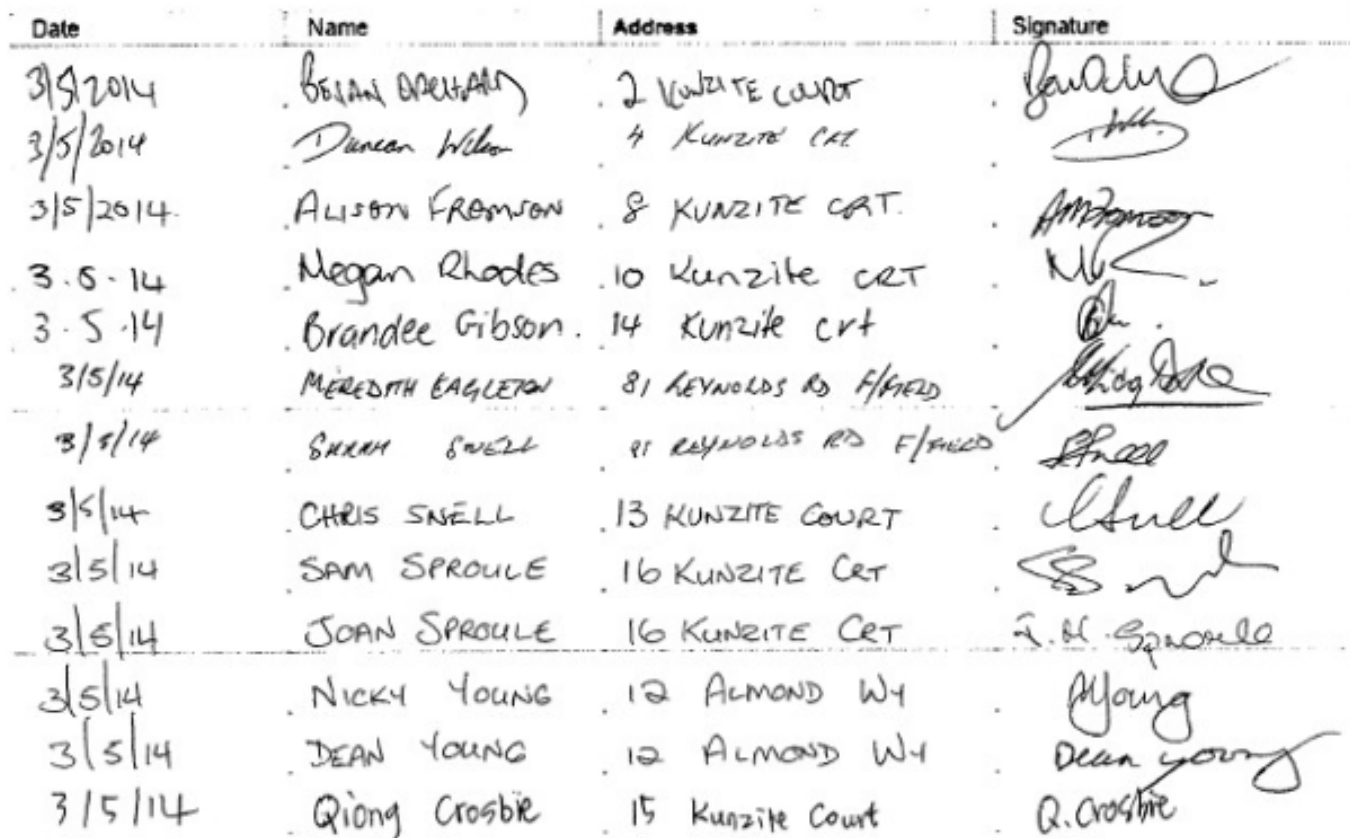 Date Name Address Signature
3/5/2014 2 KUNZITE COURT
3/5/2014 Duncan 4 KUNZITE CRT
3/5/2014. ALISON FROMSON 8 KUNZITE CRT.
3.5.14 Megan Rhodes 10 Kunzite CRT
3.5.14 Brandee Gibson. 14 Kunzite crt
3/5/14 MEREDITH EAGLETON 81 REYNOLDS RD F/FIELD
3/5/14 SARAH SNELL REYNOLDS RD F/FIELD
3/5/14 CHRIS SNELL 13 KUNZITE COURT
3/5/14 SAM SPROULE 16 KUNZITE CRT
3/5/14 JOAN SPROULE 16 KUNZITE CRT J.H. Sproule
3/5/14 NICKY YOUNG 12 ALMOND WY Young
3/5/14 DEAN YOUNG 12 ALMOND WY Dean Young
3/5/14 Qiong Crosbie 15 Kunzite Court Q. Crosbie